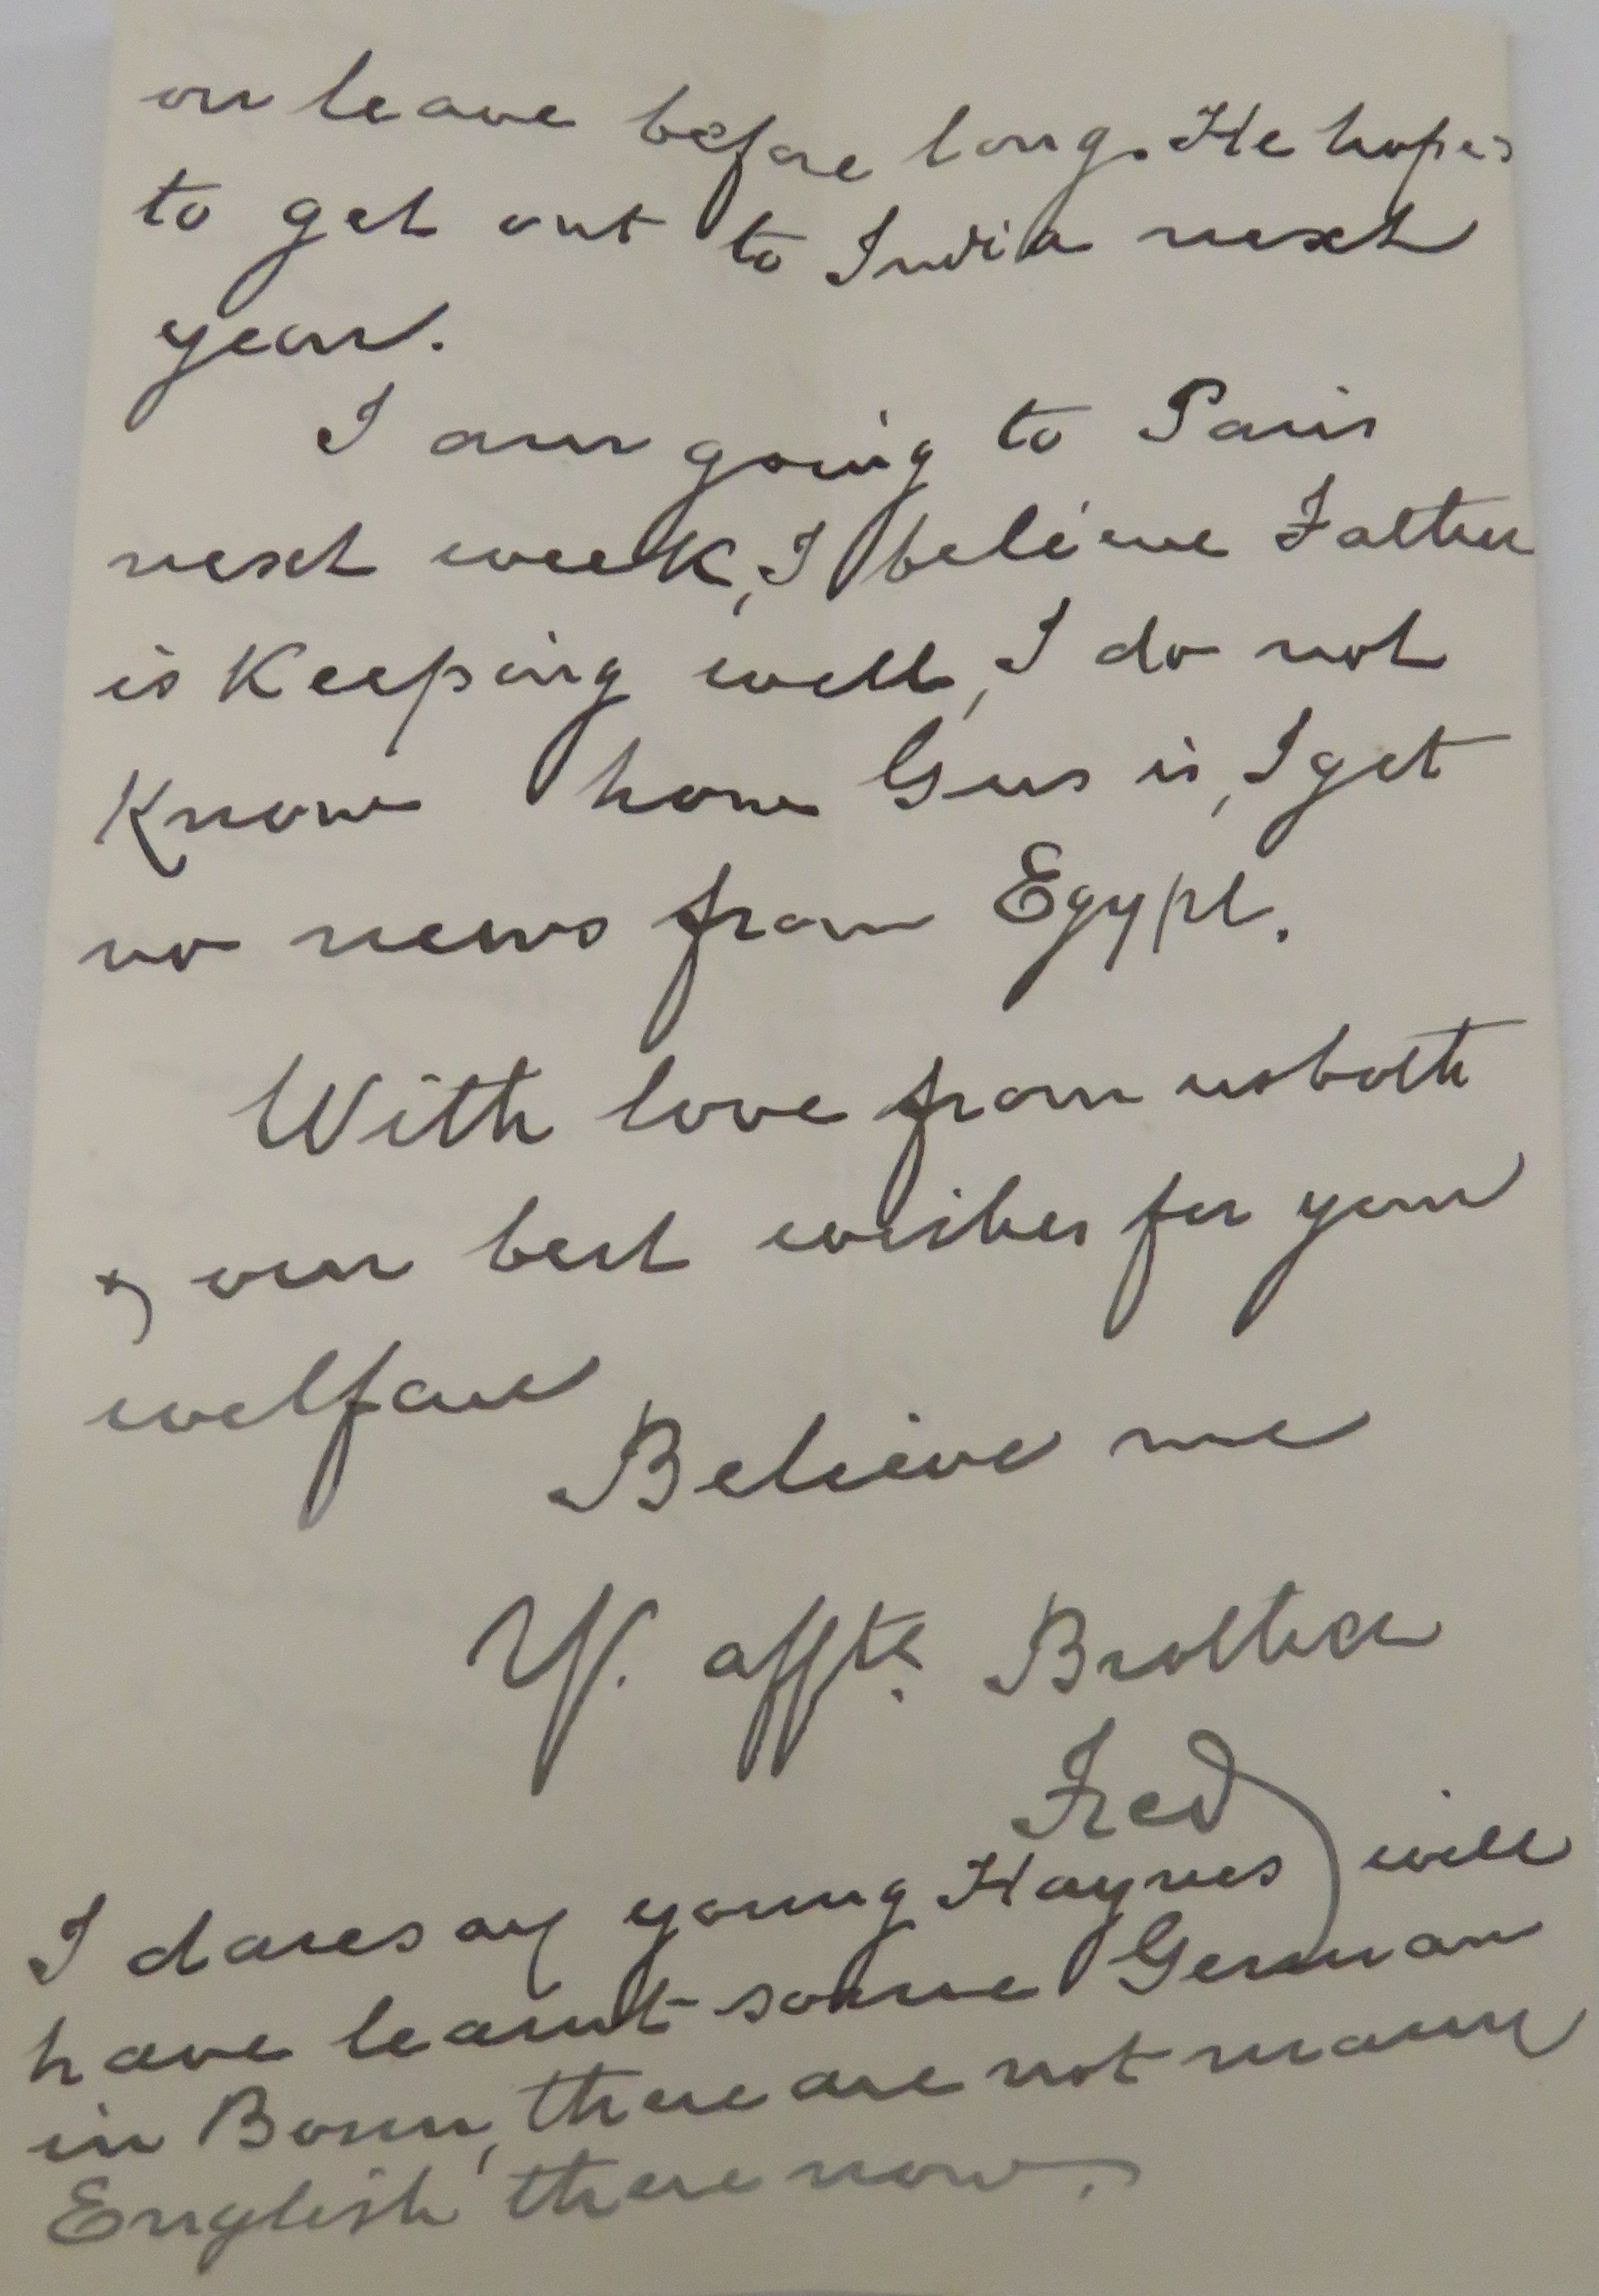 on leave before long. He hopes
to get out to India next
year.
I am going to Paris
next week, I believe Father
is Keeping well, I do not
Know how Gus is, I get
no news from Egypt.
With love from us both
& our best wishes for your
welfare
Believe me
Y. affte. Brother
Fred
I daresay young Haynes will
have learnt some German
in Bonn, there are not many
English there now.